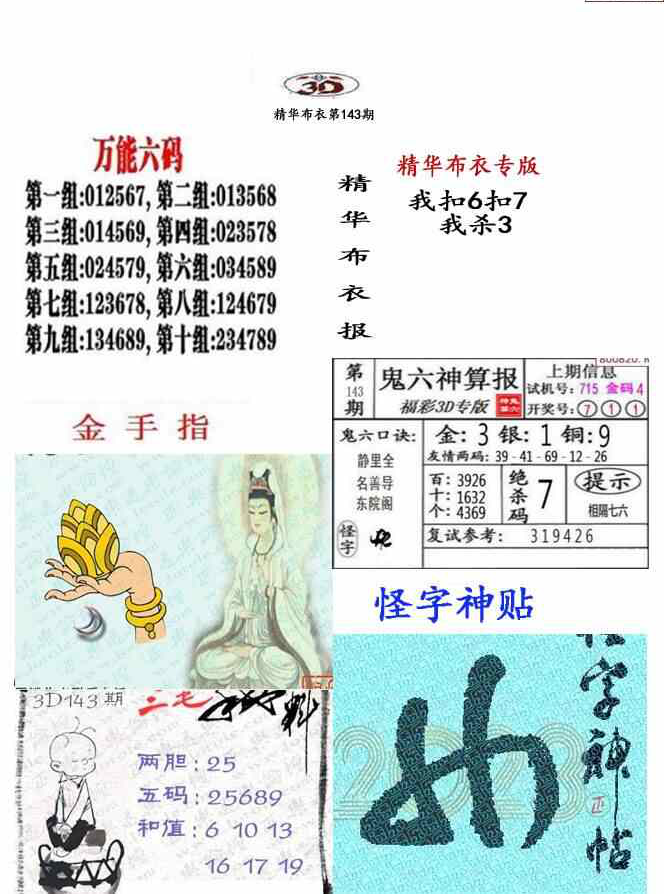 3D
精华布衣第143期
万能六码
第一组:012567,第二组:013568
第三组:014569,第四组:023578
第五组:024579,第六组:034589
第七组:123678,第八组:124679
第九组:134689,第十组:234789
精华布衣报
精华布衣专版
我扣6扣7
我杀3
金手指
第143期
鬼六神算报
福彩3D专版
上期信息
试机号:715 金码4
开奖号:⑦①①
鬼六口诀:
静里全
名善导
东院阁
怪字
金:3 银:1 铜:9
友情两码:39-41-69-12-26
百:3926
十:1632
个:4369
绝杀码 7
提示
相隔七六
复试参考: 319426
怪字神贴
3D143期
三毛
两胆:25
五码:25689
和值:6 10 13
16 17 19
2023
怪字神帖